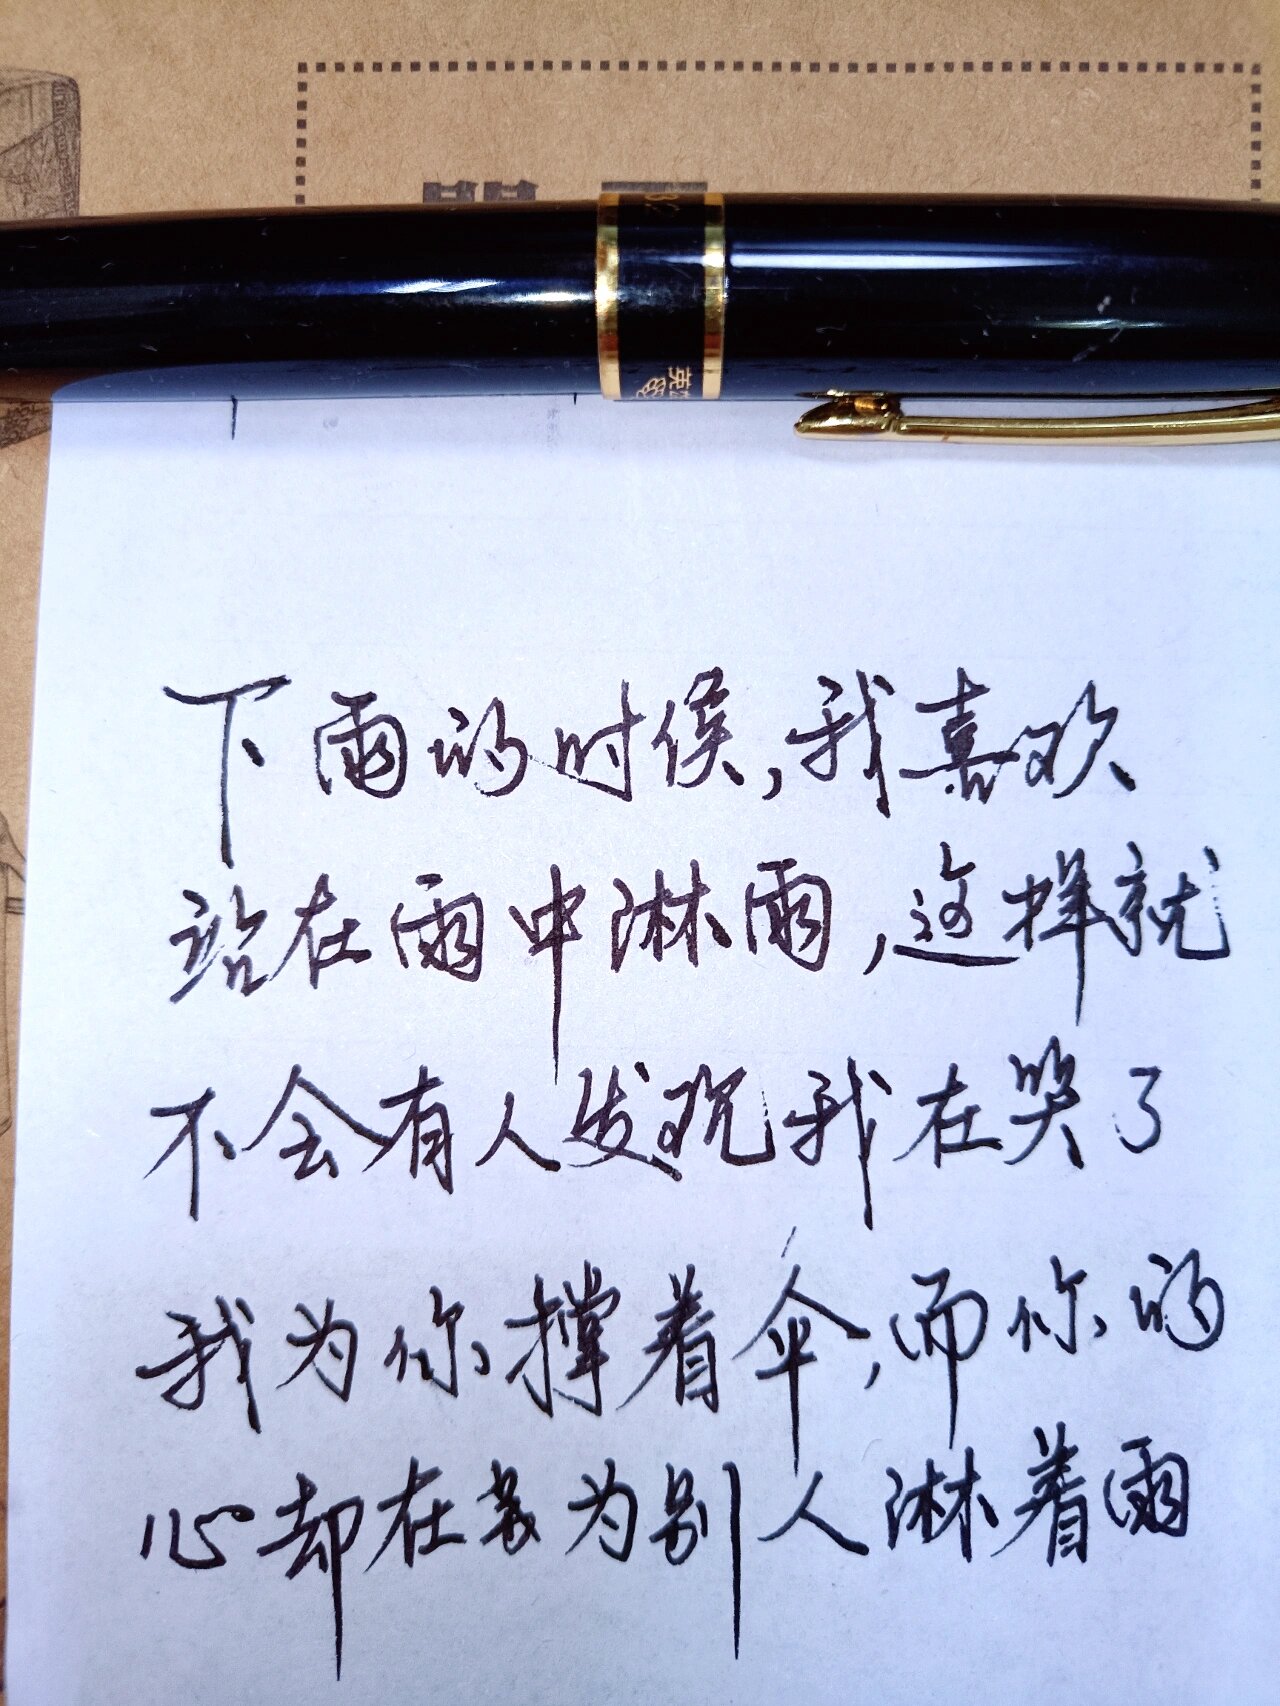 英
下雨的时侯,我喜欢
站在雨中淋雨,这样就
不会有人发现我在哭了
我为你撑着伞,而你的
心却在为别人淋着雨